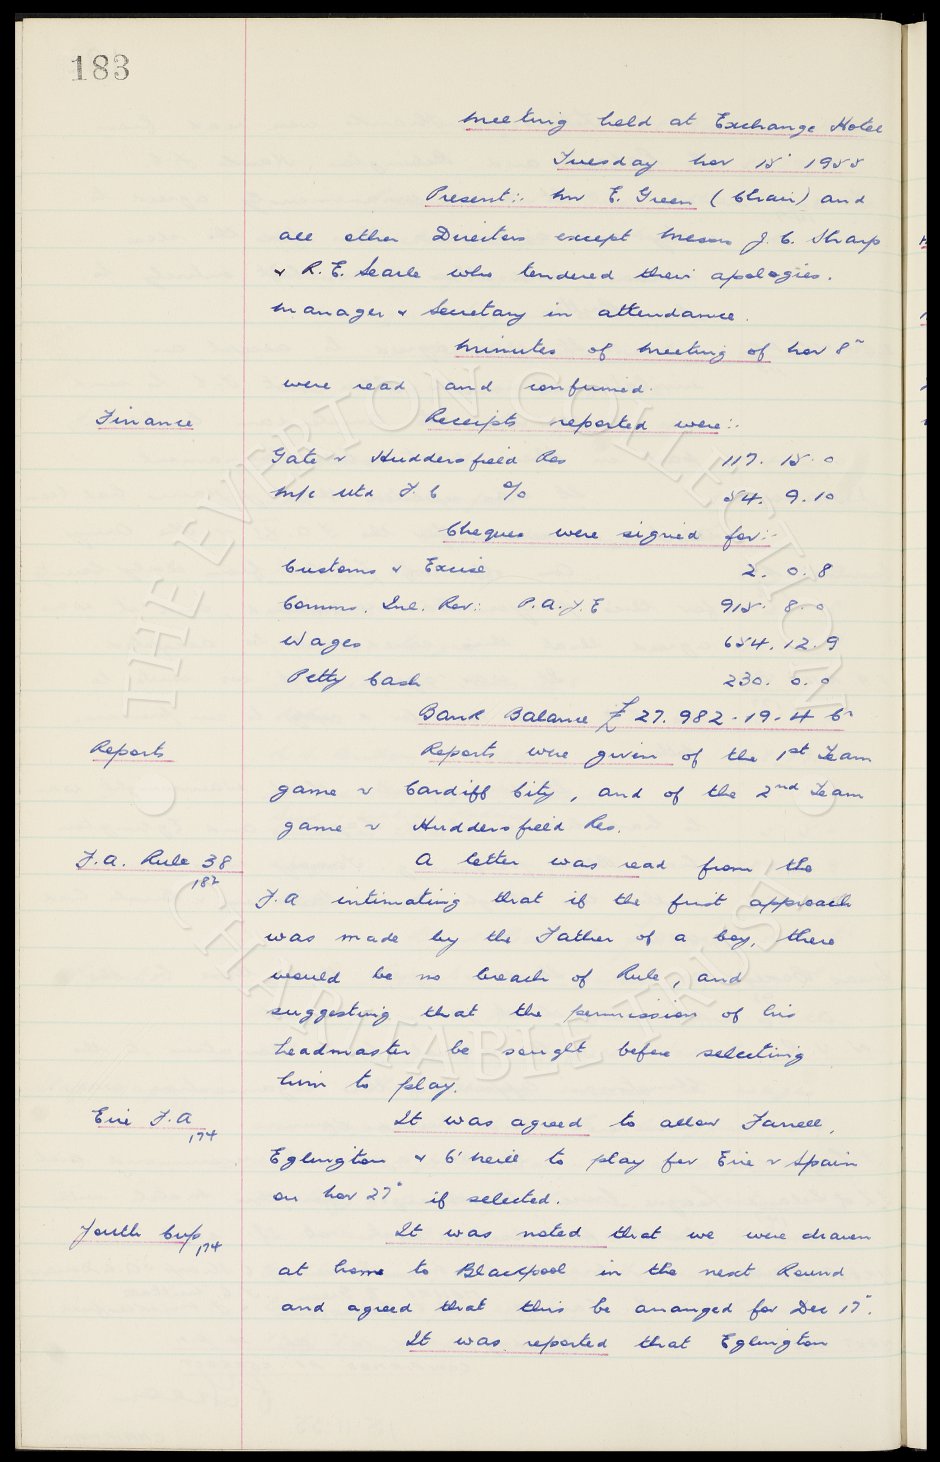 183
Meeting held at Exchange Hotel
Tuesday Nov 15" 1955
Present:- Mr E. Green (Chair) and
all other Directors except Messrs J. C. Sharp
& R. E. Searle who tendered their apologies.
Manager & Secretary in attendance.
Minutes of Meeting of Nov 8"
were read and confirmed.
Finance Receipts reported were:-
Gate v Huddersfield Res 117. 15. 0
M/c Utd F. C % 54. 9. 10
Cheques were signed for:-
Customs & Excise 2. 0. 8
Comms. Inl. Rev: P.A.Y.E 915. 8. 0
Wages 654. 12. 9
Petty Cash 230. 0. 0
Bank Balance £27.982-19-4 Cr
Reports Reports were given of the 1st Team
game v Cardiff City, and of the 2nd Team
game v Huddersfield Res.
F.A. Rule 38 A letter was read from the
182
F.A intimating that if the first approach
was made by the Father of a boy, there
would be no breach of Rule, and
suggesting that the permission of his
headmaster be sought before selecting
him to play.
Eire F.A It was agreed to allow Farrell,
174
Eglington & O'Neill to play for Eire v Spain
on Nov 27" if selected.
Youth Cup It was noted that we were drawn
174
at home to Blackpool in the next Round
and agreed that this be arranged for Dec 17".
It was reported that Eglington
THE EVERTON COLLECTION
CHARITABLE TRUST